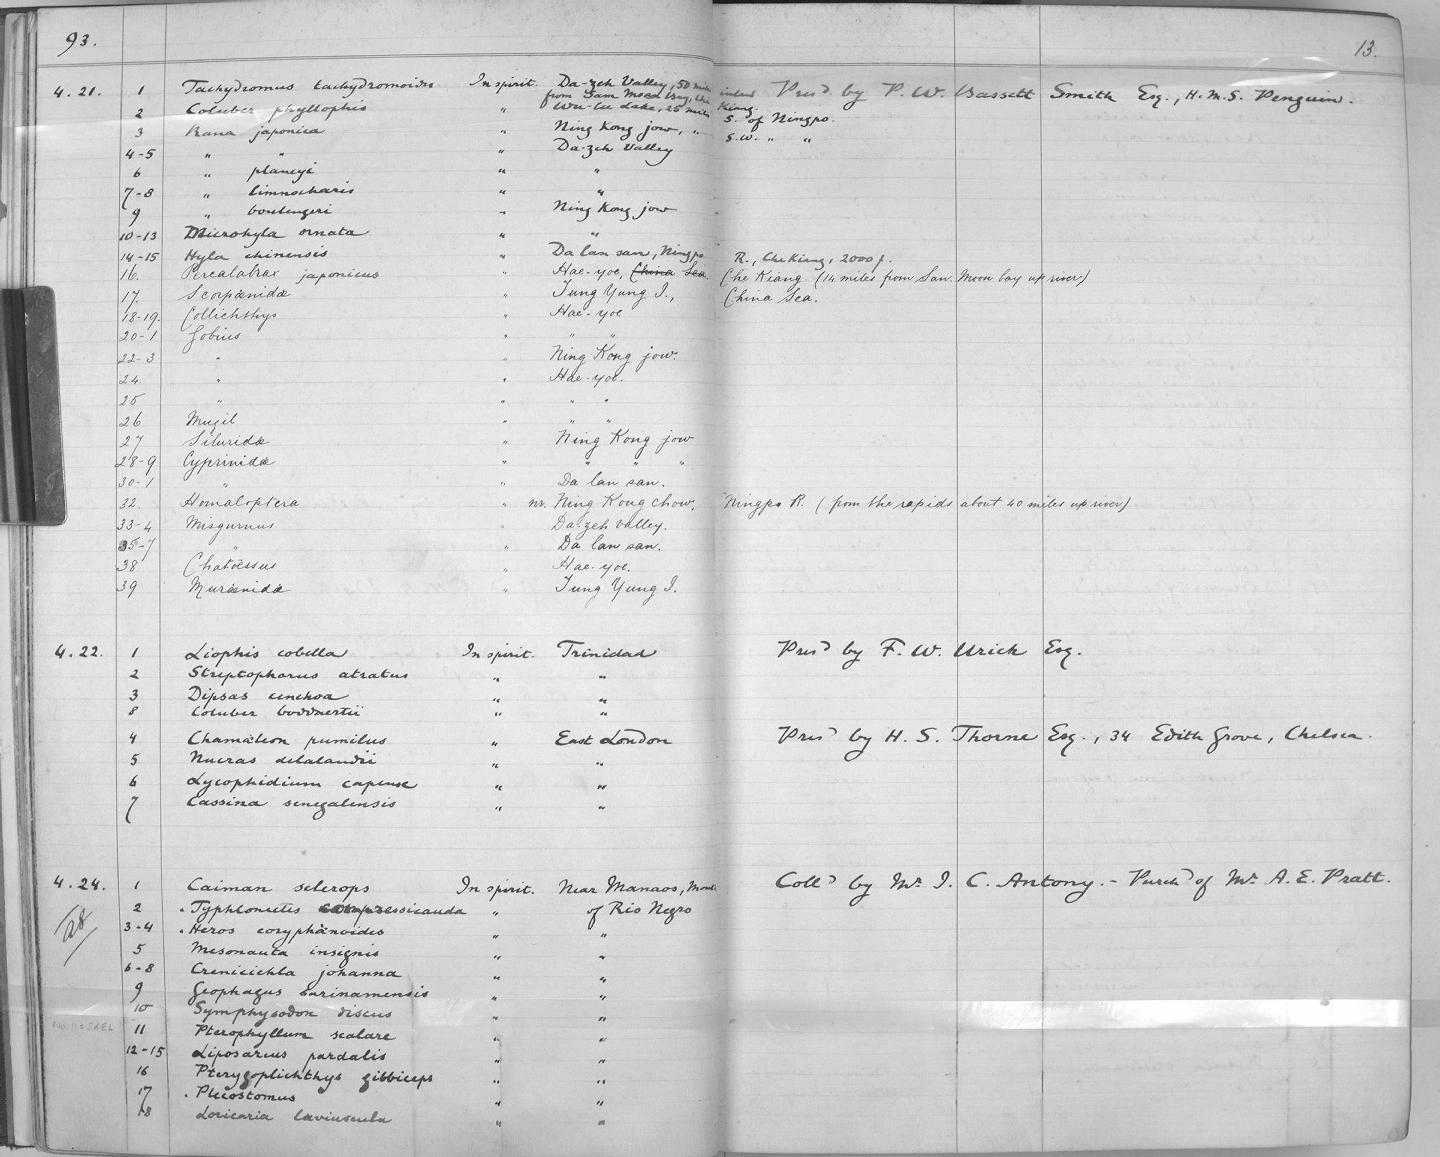 93.
13.
4.21. 1 Tachydromus tachydromoides In spirit. Da-zeh Valley, 50 miles inland Pres^d by P. W. Bassett Smith Esq., H.M.S. Penguin.
from Sam Moon Bay, Che Kiang.
2 Coluber phyllophis " Wu-lee Lake, 25 miles S. of Ningpo.
3 Rana japonica " Ning Kong jow, " S.W. " "
4-5 " " " Da-zeh Valley
6 " plancyi " "
7-8 " limnocharis " "
9 " boulengeri " Ning Kong jow
10-13 Microhyla ornata " "
14-15 Hyla chinensis " Da lan san, Ningpo R., Che Kiang, 2000 f.
16. Percalabrax japonicus " Hae-yoe, China Sea. Che Kiang (14 miles from San Moon bay up river)
17. Scorpænidæ " Tung Yung I., China Sea.
18-19. Collichthys " Hae-yoe
20-1 Gobius " " "
22-3 " " Ning Kong jow.
24. " " Hae-yoe.
25 " " " "
26 Mugil " " "
27 Siluridæ " Ning Kong jow
28-9 Cyprinidæ " " " "
30-1 " " Da lan san.
32. Homaloptera " nr. Ning Kong chow, Ningpo R. (from the rapids about 40 miles up river)
33-4 Misgurnus " Da-zeh valley.
35-7 " " Da lan san.
38 Chatoëssus " Hae-yoe.
39 Murænidæ " Tung Yung I.
4.22. 1 Liophis cobella In spirit. Trinidad Pres^d by F. W. Urich Esq.
2 Streptophorus atratus " "
3 Dipsas cenchoa " "
8 Coluber boddaertii " "
4 Chamæleon pumilus " East London Pres^d by H. S. Thorne Esq., 34 Edith Grove, Chelsea.
5 Nucras delalandii " "
6 Lycophidium capense " "
7 Cassina senegalensis " "
4.24. 1 Caiman sclerops In spirit. Near Manaos, Mouth Coll^d by Mr. J. C. Antony. - Purch^d of Mr. A. E. Pratt.
2 Typhlonectes compressicauda " of Rio Negro
28
3-4 Heros coryphænoides " "
5 Mesonauta insignis " "
6-8 Crenicichla johanna " "
9 Geophagus surinamensis " "
10 Symphysodon discus " "
No. 11 = SKEL 11 Pterophyllum scalare " "
12-15 Liposarcus pardalis " "
16 Pterygoplichthys gibbiceps " "
17 Plecostomus " "
18 Loricaria laviuscula " "